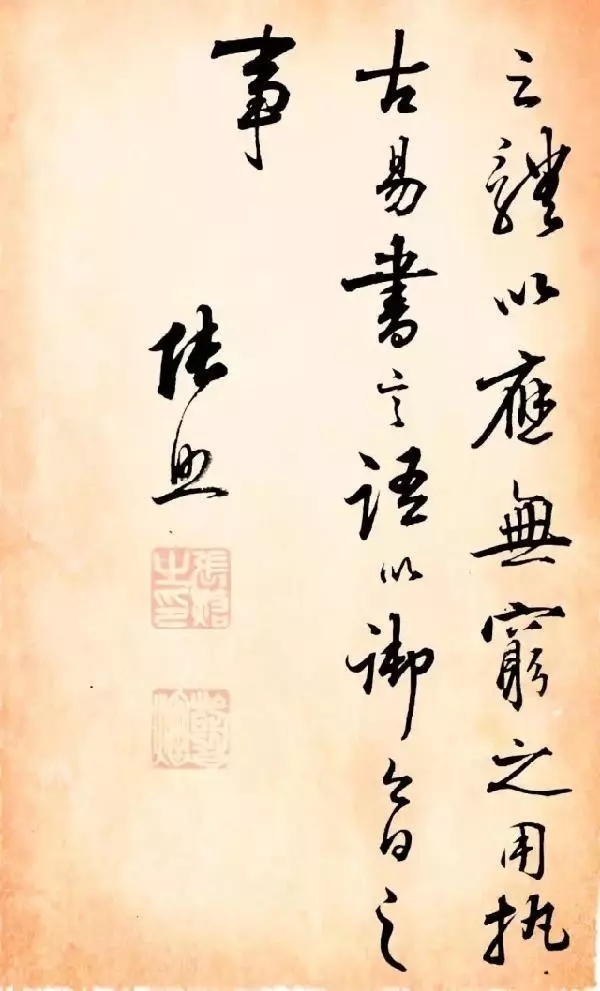 之體以應無窮之用執
古易書之語以御今日之
事
張照
張照之印